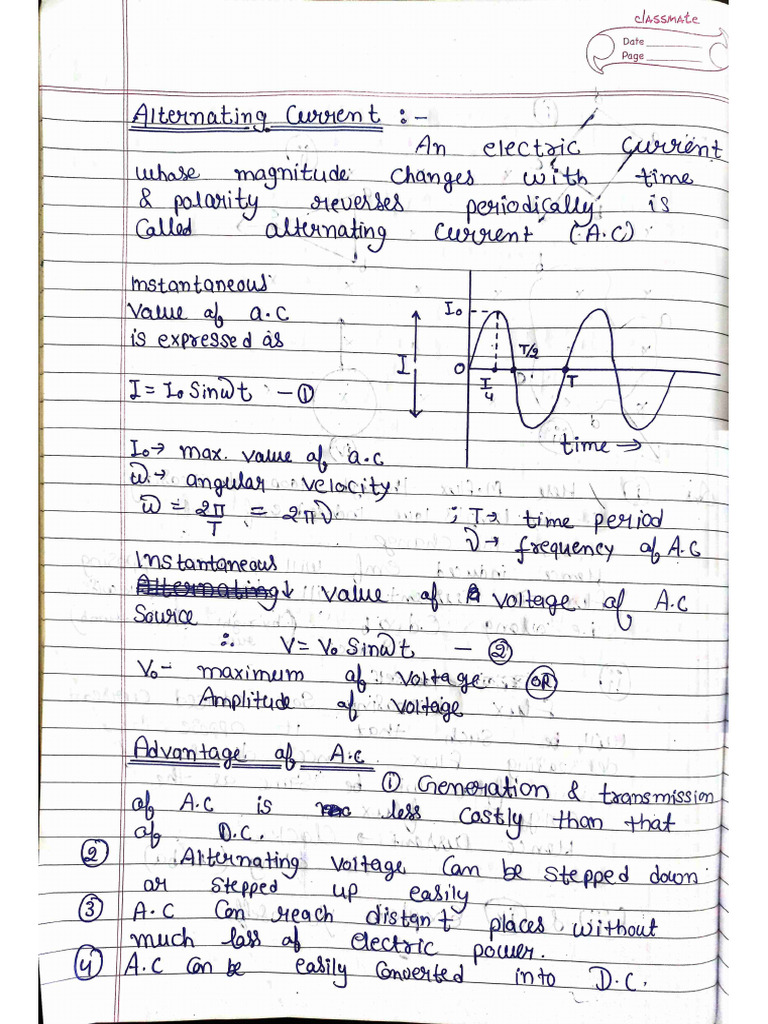 classmate
Date
Page
Alternating Current :-
An electric current
whose magnitude changes with time
& polarity reverses periodically is
Called alternating current (A.C)
Instantaneous
value of a.c
is expressed as
I = I₀ Sinωt — ①
I₀
I
O
T/4
T/2
T
time →
I₀→ max. value of a.c
ω→ angular velocity
ω = 2π/T = 2πν ; T→ time period
ν→ frequency of A.C
Instantaneous
value of voltage of A.C
Source
∴ V = V₀ Sinωt — ②
V₀- maximum of voltage OR
Amplitude of voltage
Advantage of A.C
① Generation & transmission
of A.C is less costly than that
of D.C.
② Alternating voltage can be stepped down
or stepped up easily
③ A.C Can reach distant places without
much loss of electric power.
④ A.C can be easily converted into D.C.